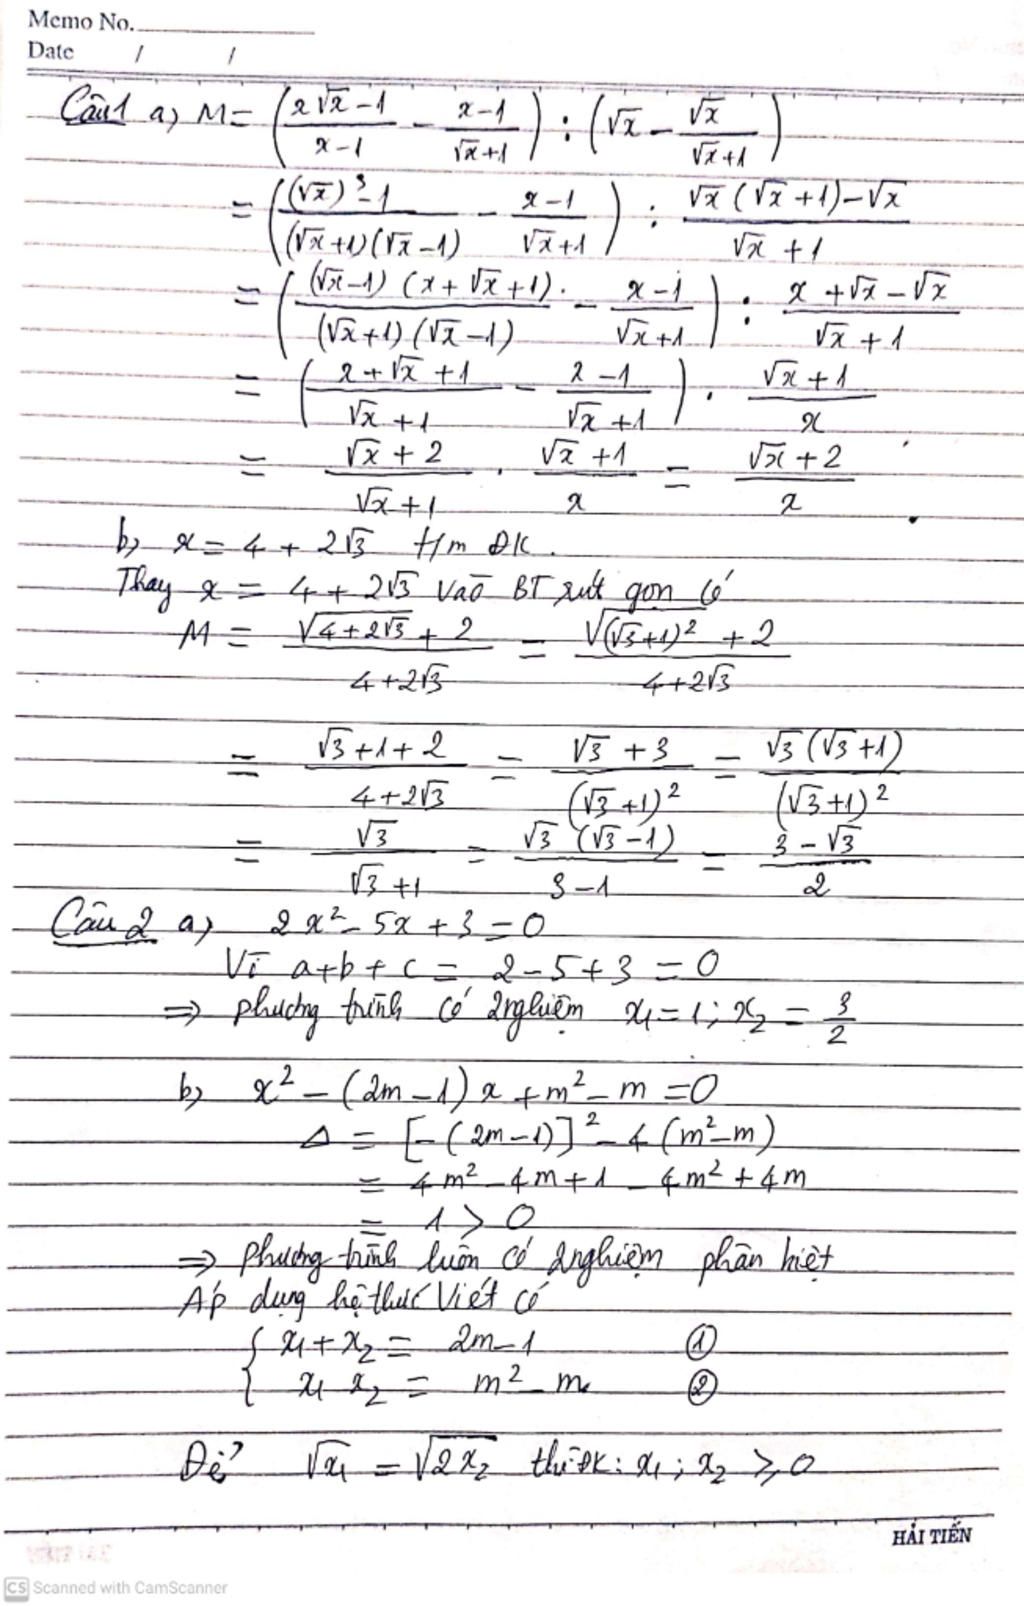 Memo No.
Date / /
Câu 1 a, M = ((x√x − 1)/(x − 1) − (x − 1)/(√x + 1)) : (√x − √x/(√x + 1))
= (((√x)³ − 1)/((√x + 1)(√x − 1)) − (x − 1)/(√x + 1)) : (√x(√x + 1) − √x)/(√x + 1)
= (((√x − 1)(x + √x + 1))/((√x + 1)(√x − 1)) − (x − 1)/(√x + 1)) : (x + √x − √x)/(√x + 1)
= ((x + √x + 1)/(√x + 1) − (x − 1)/(√x + 1)) . (√x + 1)/x
= (√x + 2)/(√x + 1) . (√x + 1)/x = (√x + 2)/x
b, x = 4 + 2√3 t/m ĐK.
Thay x = 4 + 2√3 vào BT rút gọn có
M = (√(4 + 2√3) + 2)/(4 + 2√3) = (√((√3 + 1)²) + 2)/(4 + 2√3)
= (√3 + 1 + 2)/(4 + 2√3) = (√3 + 3)/((√3 + 1)²) = (√3(√3 + 1))/((√3 + 1)²)
= √3/(√3 + 1) = (√3(√3 − 1))/(3 − 1) = (3 − √3)/2
Câu 2 a, 2x² − 5x + 3 = 0
Vì a + b + c = 2 − 5 + 3 = 0
⇒ phương trình có 2 nghiệm x₁ = 1; x₂ = 3/2
b, x² − (2m − 1)x + m² − m = 0
Δ = [−(2m − 1)]² − 4(m² − m)
= 4m² − 4m + 1 − 4m² + 4m
= 1 > 0
⇒ phương trình luôn có 2 nghiệm phân biệt
Áp dụng hệ thức Viét có
{ x₁ + x₂ = 2m − 1 ①
x₁ x₂ = m² − m ②
Để √x₁ = √(2x₂) thì ĐK: x₁; x₂ ⩾ 0
HẢI TIẾN
CS Scanned with CamScanner